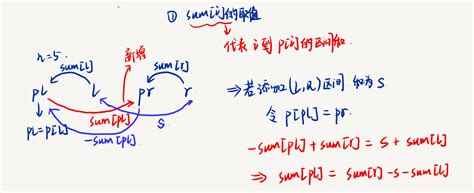 ① sum[i]的取值
代表 i 到 p[i] 的区间和
n=5.
sum[l]
新增
sum[r]
pl
l
pr
r
pl=p[l]
sum[pl]
-sum[pl]
s
⇒ 若添加(l,r)区间 和为 s
令 p[pl] = pr.
-sum[pl] + sum[r] = s + sum[l]
⇒ sum[pl] = sum[r] - s - sum[l]